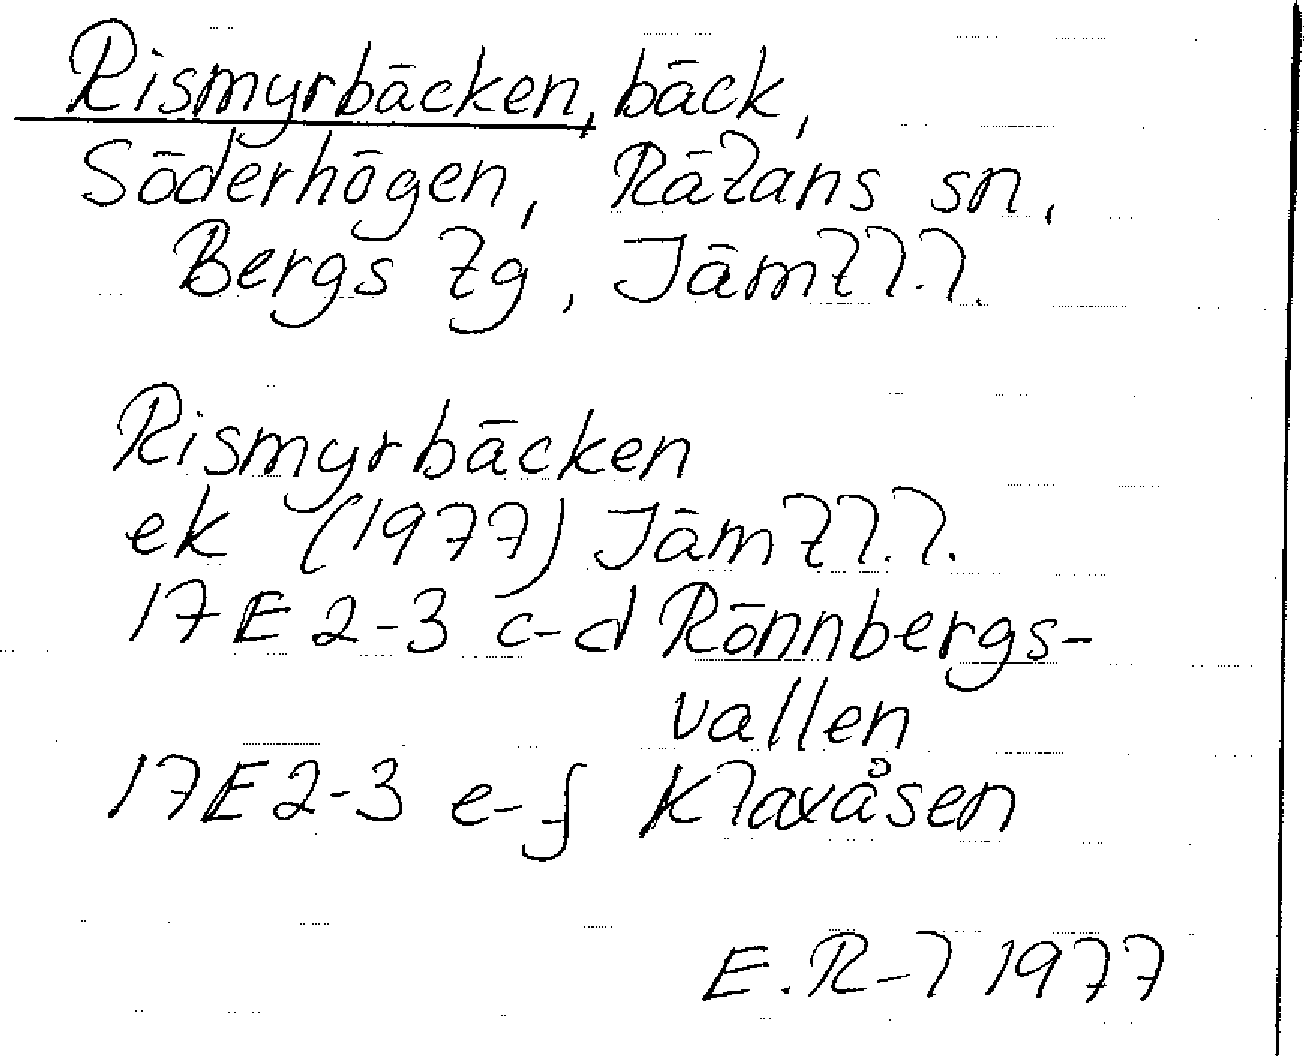 Rismyrbäcken, bäck,
Söderhögen, Rätans sn,
Bergs tg, Jämtl.l.
Rismyrbäcken
ek (1977) Jämtl.l.
17E 2-3 c-d Rönnbergs-
vallen
17E 2-3 e-f Klaxåsen
E.R-l 1977